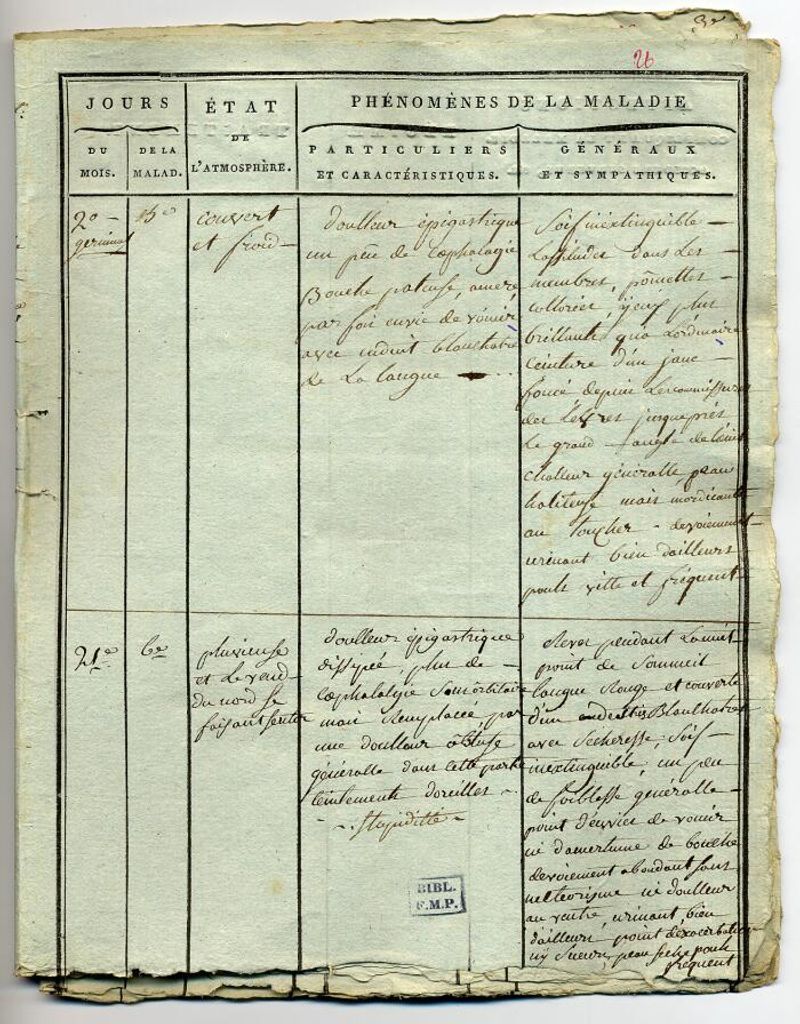 26
JOURS
DU
MOIS.
DE LA
MALAD.
ÉTAT
DE
L'ATMOSPHÈRE.
PHÉNOMÈNES DE LA MALADIE
PARTICULIERS
ET CARACTÉRISTIQUES.
GÉNÉRAUX
ET SYMPATHIQUES.
20
germinal
couvert
et froid
doulleur épigastrique
un peu de Cephalagie
Bouche pateuse, amere
par fois envie de vomir
avec enduit blanchatre
de La langue
Soif inextinguible
Lassitudes dans Les
membres, pomettes
collorées, yeux plus
brillants qu'a Lordinaire
Ceinture d'un jaune
foncé depuis Les commissures
des Levres jusque près
Le grand angle de l'oeil
Challeur généralle, peau
haliteuse mais mordicante
au toucher - devoiement
urinant bien dailleurs
pouls vitte et fréquent
21e
6e
pluvieuse
et Le vend
du nord se
faisant sentir
doulleur épigastrique
dissipée, plus de
Cephalalgie Sousorbitaire
mais Remplacée, par
une doulleur obtuse
généralle dans cette partie
teintements doreilles
stupiditte
Rever pendant La nuit
point de Sommeil
langue Rouge et couverte
d'un enduit Blanchatre
avec Secheresse, Soif
inextinguible, un peu
de foiblesse généralle
point d'envier de vomir
ni d'amertume de bouche
devoiement abondant sans
meteorisme ni doulleur
au ventre, urinant, bien
d'ailleurs point d'exacerbation
ny Sueur, peau seche pouls
frequent
BIBL.
F.M.P.